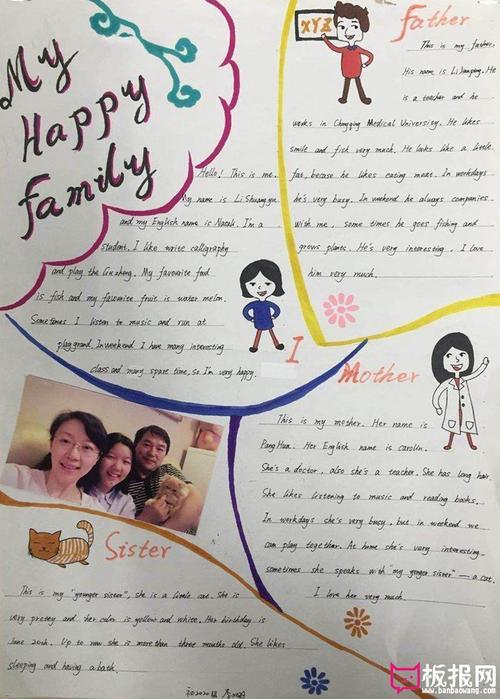 My
Happy
family
Hello! This is me.
My name is Li Shuang yu
and my English name is Natali. I'm a
student. I like write calligraphy
and play the Gu zheng. My favourite food
is fish and my favourite fruit is water melon.
Sometimes I listen to music and run at
playgrand. In weekend I have many interesting
class and many spare time, so I'm very happy.
I
XYZ
Father
This is my father.
His name is Li Jianping. He
is a teacher and he
works in Chongqing Medical University. He likes
smile and fish very much. He looks like a little
fat, becase he likes eating meat. In workdays
he's very busy. In weekend he always companies
with me, some times he goes fishing and
grows plants. He's very interesting. I love
him very much.
Mother
This is my mother. Her name is
Pang Hua. Her English name is carolin.
She's a doctor, also she's a teacher. She has long hair
She likes listening to music and reading books.
In workdays she's very busy, but in weekend we
can play together. At home she's very interesting.
sometimes she speaks with "my yonger sister" — a cat.
I love her very much.
Sister
This is my "younger sister", she is a little cat. She is
very pretty and her color is yellow and white. Her birthday is
June 20th. Up to now she is more than three months old. She likes
sleeping and having a bath.
初2020级
板报网
www.banbaowang.com